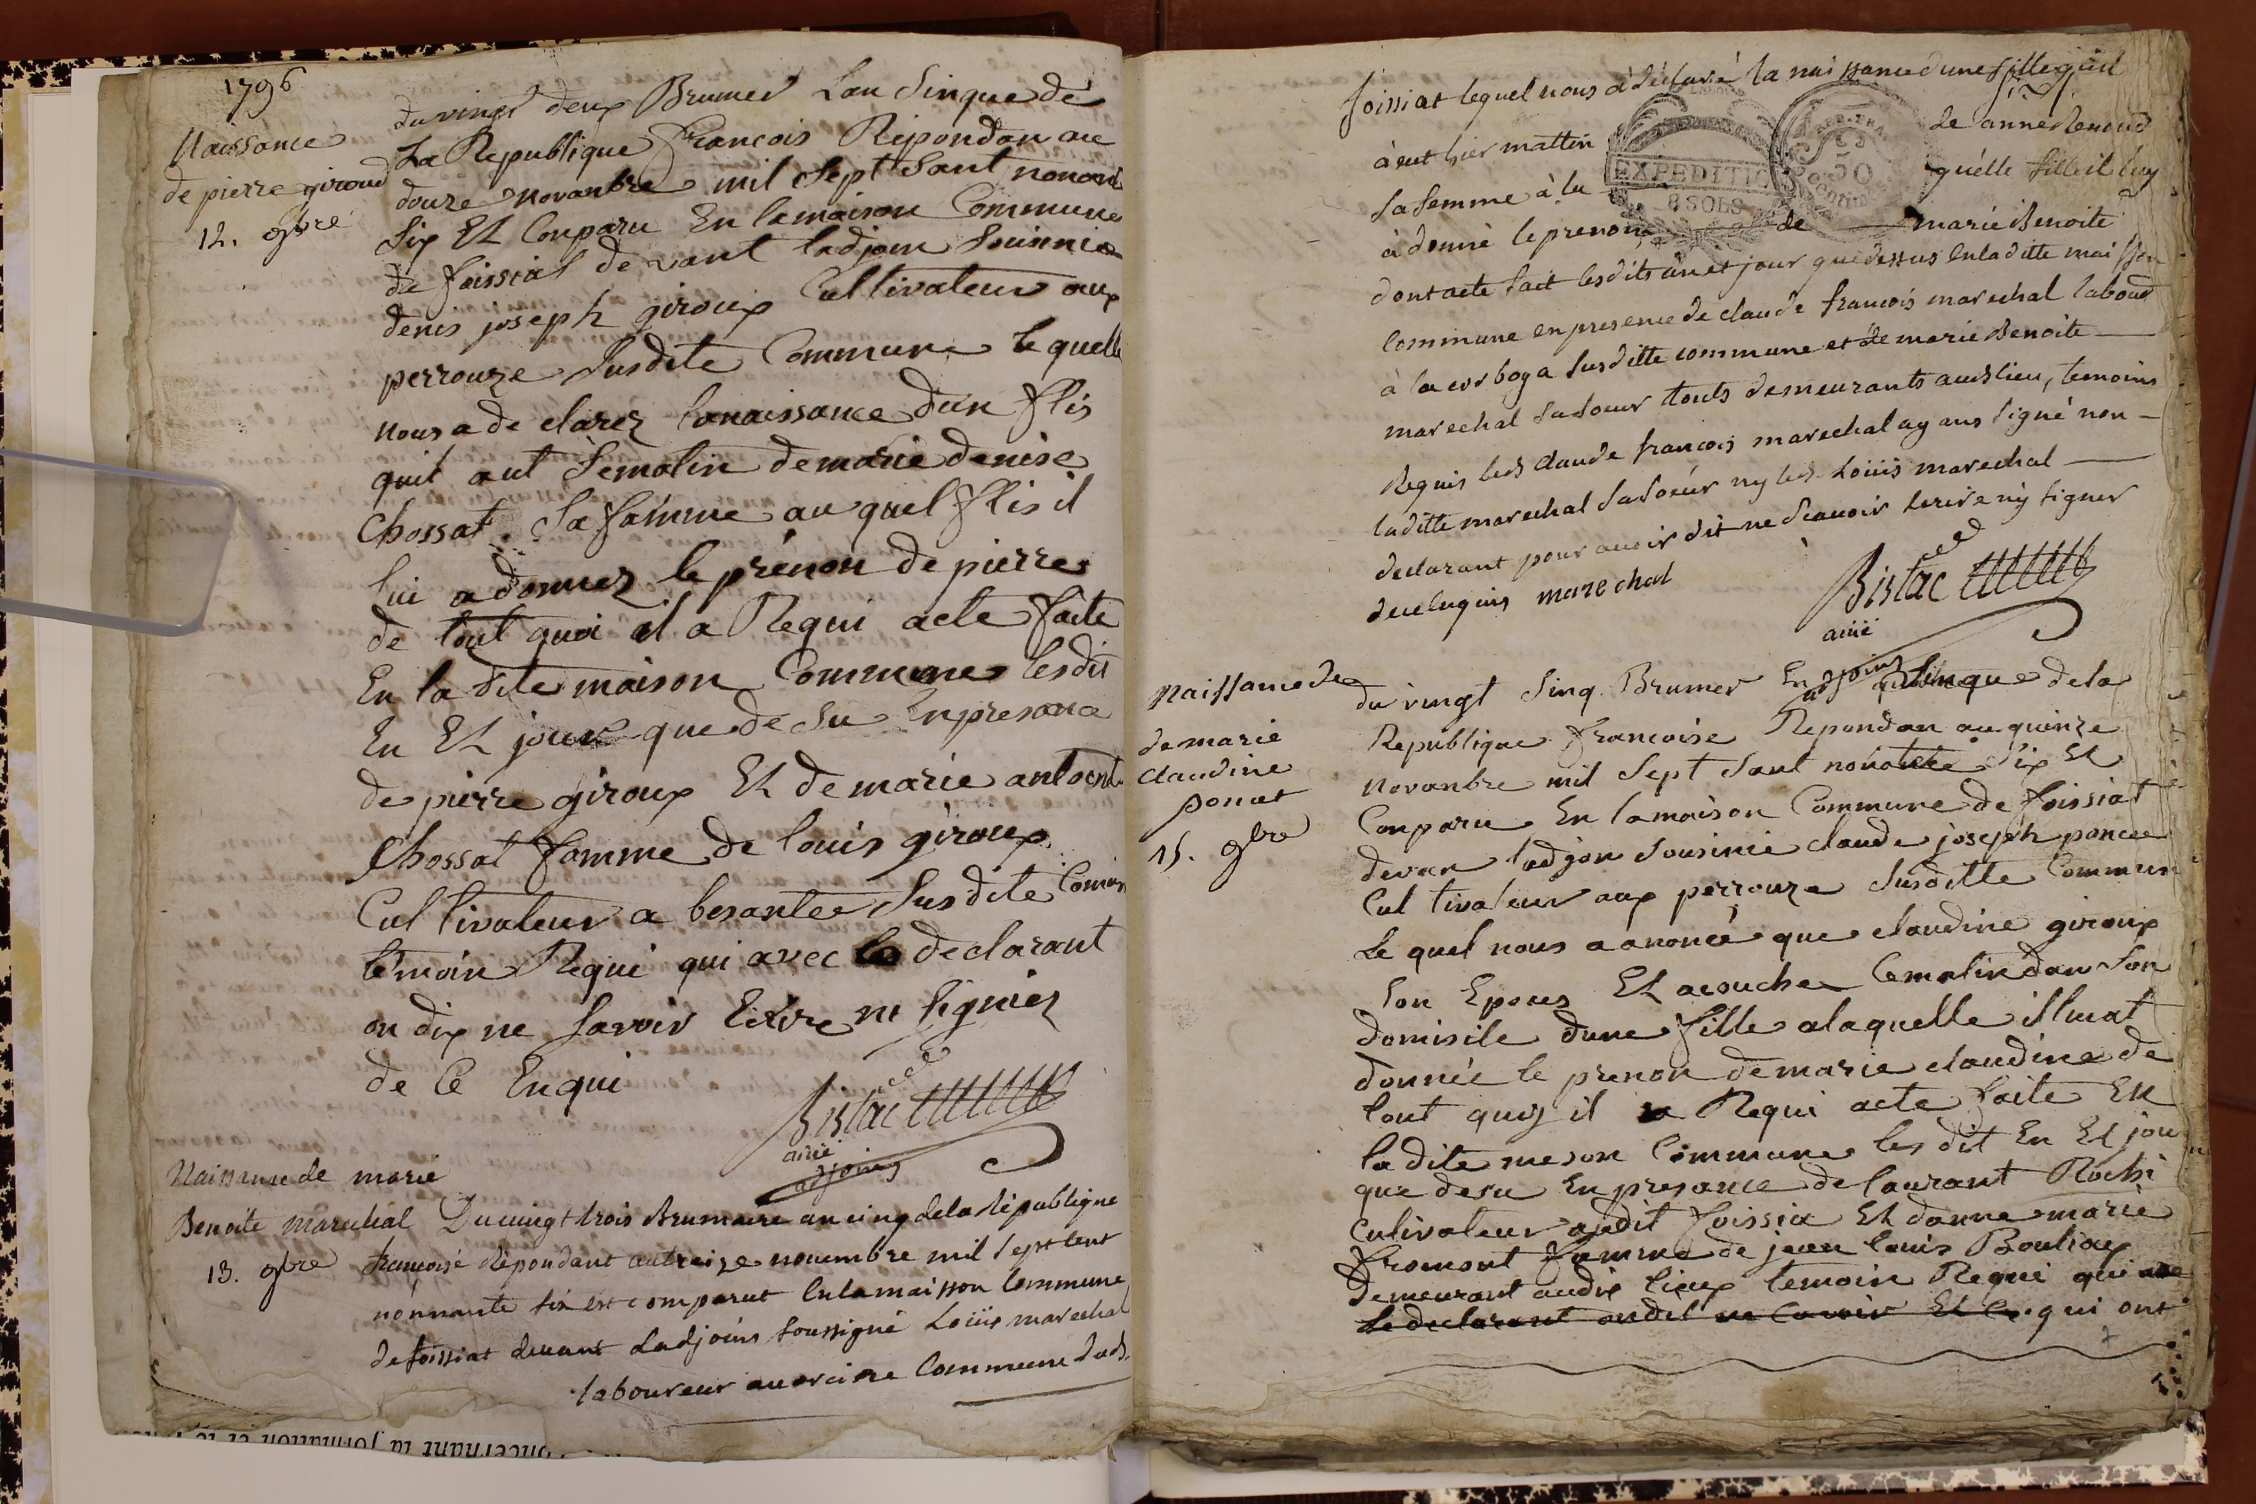 1796
Naissance
de pierre giroud
12. 9bre
du vingt deux Brumer Lan Sinque de
La Republique francois Repondan au
douze novanbre mil Sept Sant nonant
Six Et Conparu En lamaison Commune
de foissiat devant ladjoin Sousinie
denis joseph giroux Cultivateur aux
perrouze Susdite Commune le quelle
nous a de clarez lanaissance dun flis
quil aut Semalin de marie denise
Chossat Sa famme au quel flis il
lui a donnez le prénon de pierre
de tout quoi il a Requi acte faite
En la dite maison Commune lesdit
En Et jour que de Su En presance
de pierre giroux Et de marie antoent
Chossat famme de louis giroux
Cultivateur a besantee Susdite Comun
témoin Requi qui avec le declarant
on dix ne Savoir Ecrire ni Signiez
de Ce Enqui
Bistac
ainé
adjoint
Naissance de marie
Benoite marechal
13. 9bre
Du vingt trois Brumaire an cinq de la République
francoise Répondant au treize novembre mil Sept Cent
nonnante Six est comparut en la maisson Commune
de foissiat devant Ladjoins Soussigné Loüis marechal
laboureur au Commune dud.
foissiat lequel nous a déclaré la naissance d'une fille quil
à eut hier mattin de anne Renoud
EXPEDITION
8 SOLS
REP. FRA
50
sa femme à la quelle fille il luy
à donné le prenom de marie Benoite
dont acte fait lesdits an et jour que dessus en la ditte maisson
Commune en presence de claude francois marechal laboud
à la Susditte commune et de marie Benoite
marechal sa soeur touts demeurants aud. lieu, temoins
Requis led. claude francois marechal ayans signé non
laditte marechal sa soeur ny led. Loüis marechal
declarant pour avoir dit ne Scavoir Ecrire ny signer
de ce enquis marechal
Bistac
ainé
adjoint
Naissance de
de marie
claudine
poncet
15. 9bre
du vingt Sinq Brumer En Sinque de la
Republique francoise Repondan au quinze
Novanbre mil Sept Sant nonante Six Et
Conparu En lamaison Commune de foissiat
devan ladjon Sousinié claude joseph poncee
Cul tivateur aux perrouze Susditte Commun
Le quel nous a anoncé que claudine giroux
Son Epous Et acouche Cematin dan Son
domisile dune fille a laquelle il luiat
donnée le prenon de marie claudine de
tout quoy il a Requi acte faite En
la dite meson Commune les dit En Et jou
que desu En presance de laurant Rochi
Cultivateur audit foissia Et danne marie
fromont famme de jean louis Bouliox
demeurant audit lieux temoin Requi qui
le declarant ondit ne Savoir Et qui ont